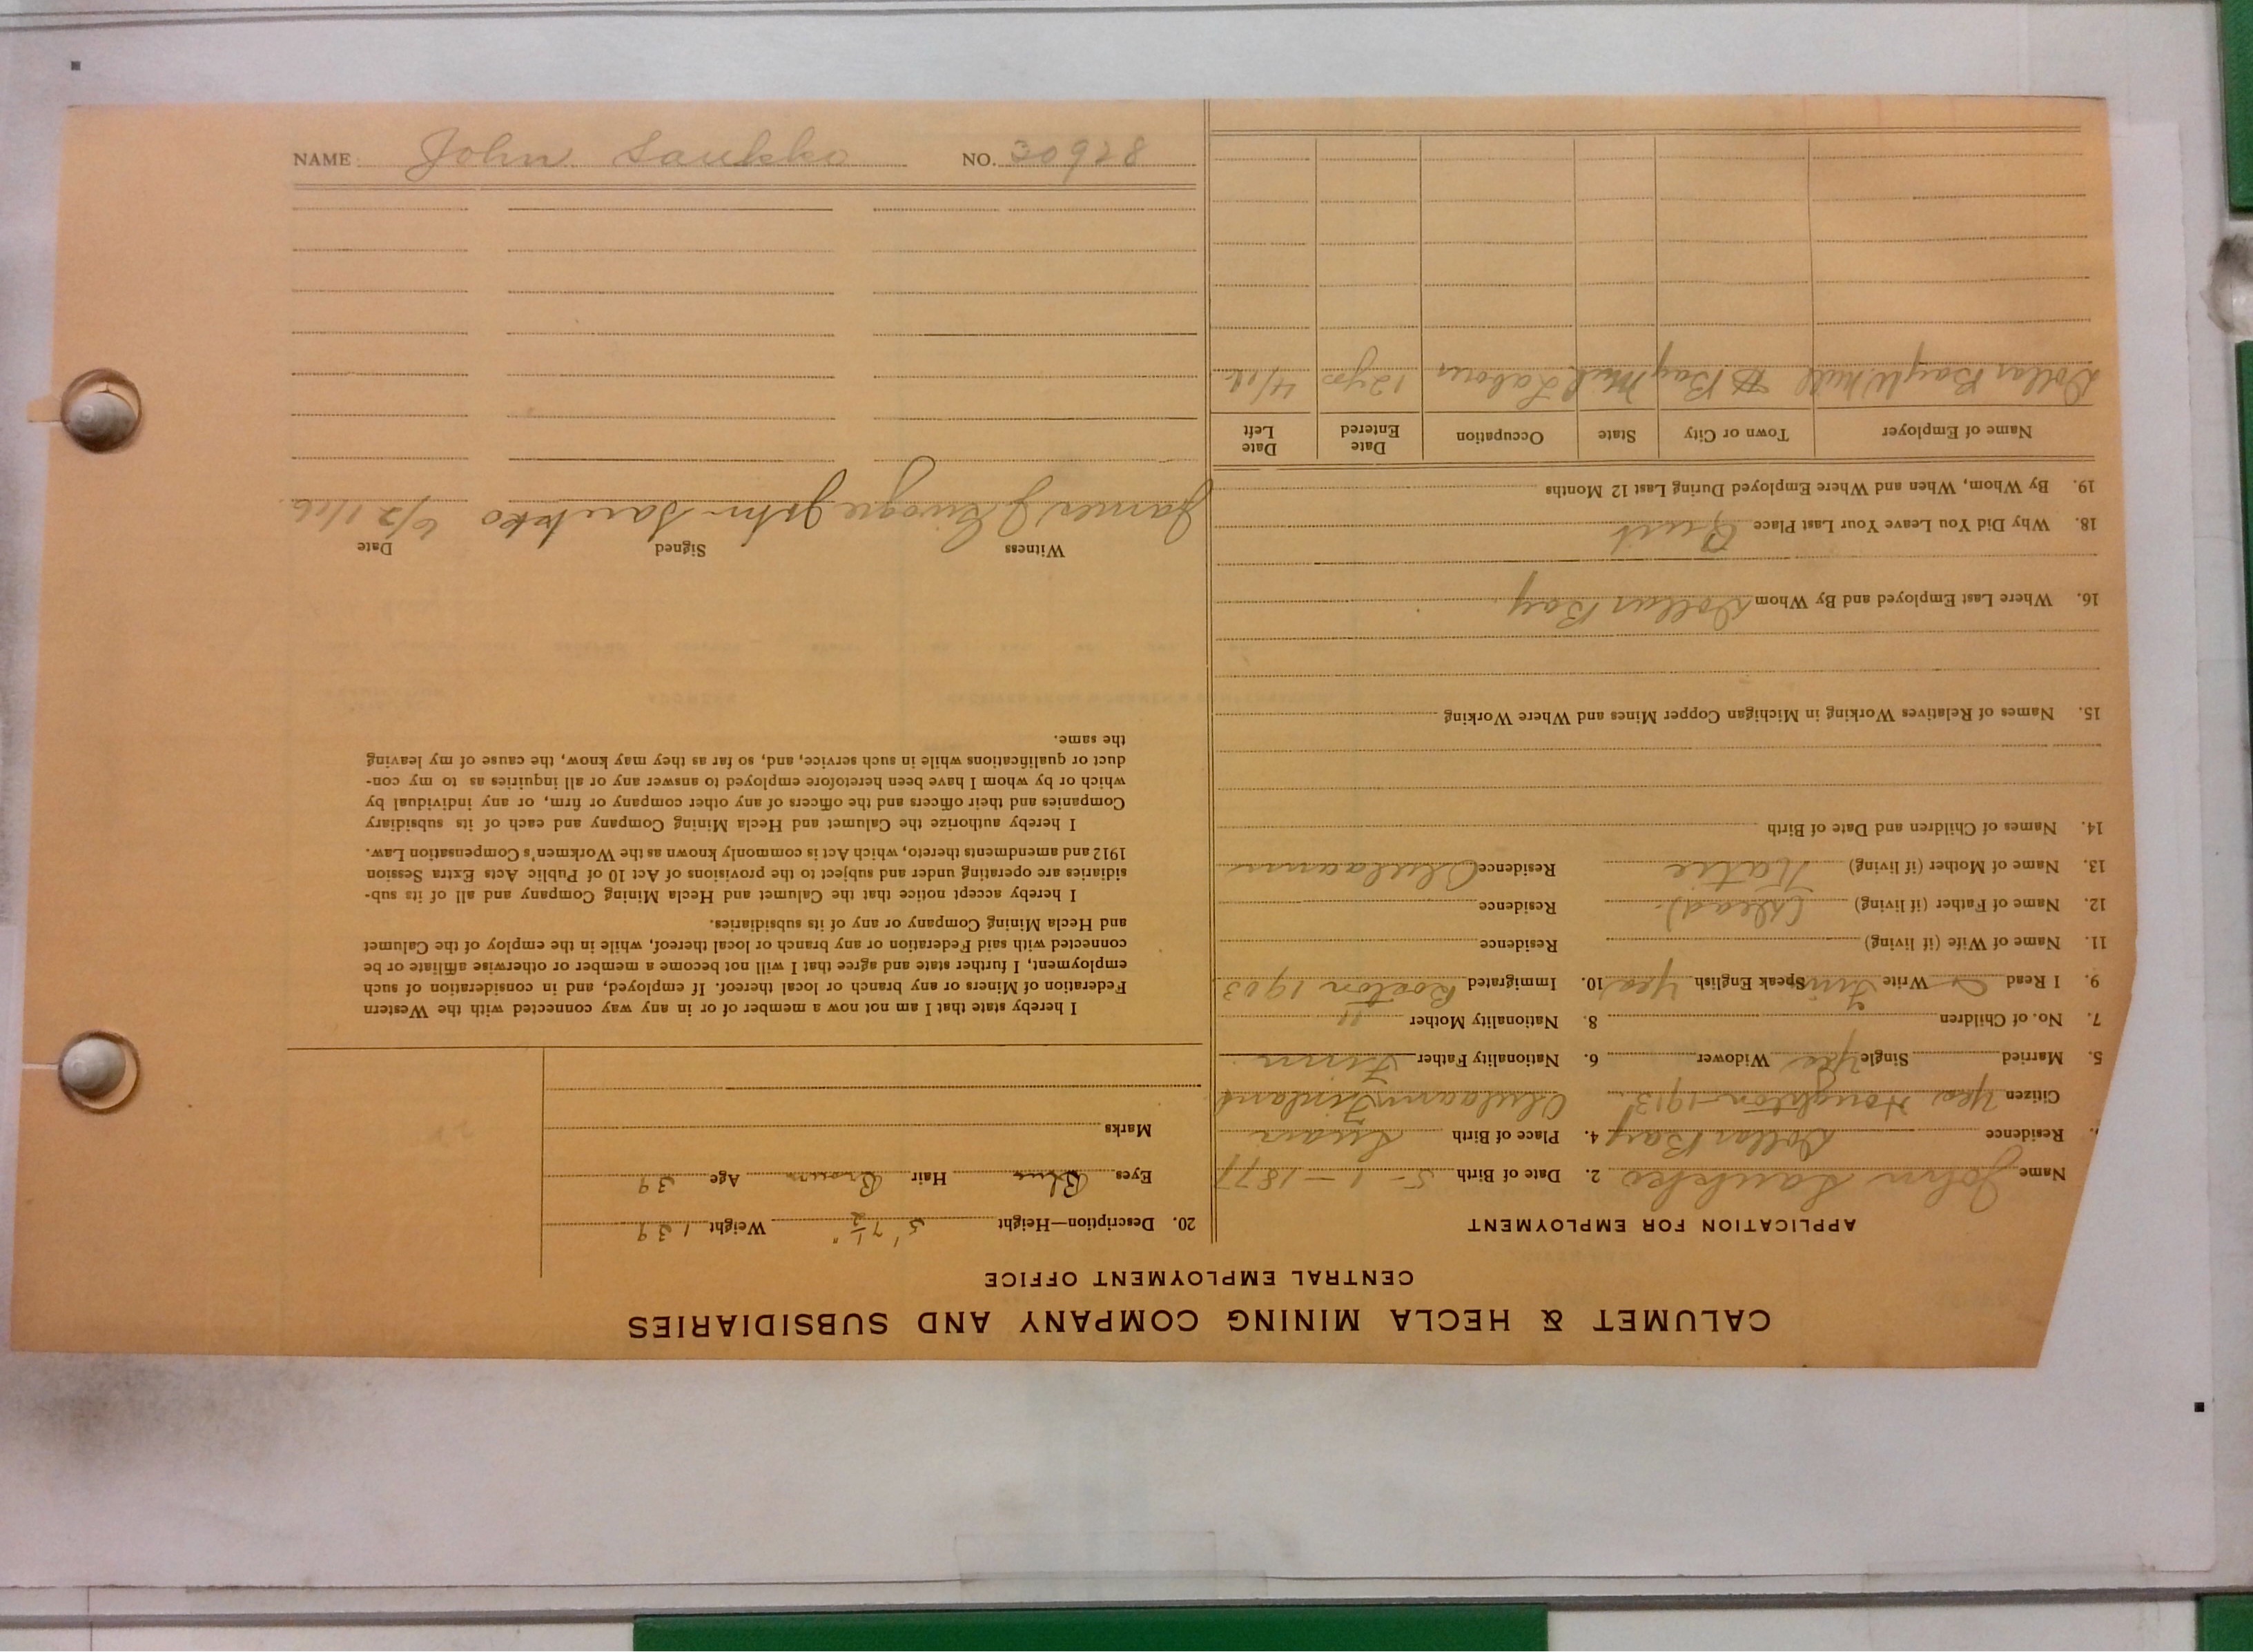 NAME John Saukko NO. 30928
CALUMET & HECLA MINING COMPANY AND SUBSIDIARIES
CENTRAL EMPLOYMENT OFFICE
APPLICATION FOR EMPLOYMENT
Name John Saukko 2. Date of Birth 5-1-1877
Residence Dollar Bay 4. Place of Birth
Citizen Yes Houghton 1913 Finland
5. Married Single Yes Widower 6. Nationality Father Finn
7. No. of Children 8. Nationality Mother "
9. I Read Write Finn Speak English Yes 10. Immigrated Boston 1903
11. Name of Wife (if living) Residence
12. Name of Father (if living) (Dead) Residence
13. Name of Mother (if living) Katie Residence
14. Names of Children and Date of Birth
15. Names of Relatives Working in Michigan Copper Mines and Where Working
16. Where Last Employed and By Whom Dollar Bay
18. Why Did You Leave Your Last Place Quit
19. By Whom, When and Where Employed During Last 12 Months
Name of Employer Town or City State Occupation Date Entered Date Left
Dollar Bay W Mill $ Bay Mich Labour 12 yrs 4/16
20. Description—Height 5' 7 1/2" Weight 139
Eyes Blue Hair Brown Age 39
Marks
I hereby state that I am not now a member of or in any way connected with the Western
Federation of Miners or any branch or local thereof. If employed, and in consideration of such
employment, I further state and agree that I will not become a member or otherwise affiliate or be
connected with said Federation or any branch or local thereof, while in the employ of the Calumet
and Hecla Mining Company or any of its subsidiaries.
I hereby accept notice that the Calumet and Hecla Mining Company and all of its sub-
sidiaries are operating under and subject to the provisions of Act 10 of Public Acts Extra Session
1912 and amendments thereto, which Act is commonly known as the Workmen's Compensation Law.
I hereby authorize the Calumet and Hecla Mining Company and each of its subsidiary
Companies and their officers and the officers of any other company or firm, or any individual by
which or by whom I have been heretofore employed to answer any or all inquiries as to my con-
duct or qualifications while in such service, and, so far as they may know, the cause of my leaving
the same.
Witness Signed Date
James J John Saukko 6/21/16